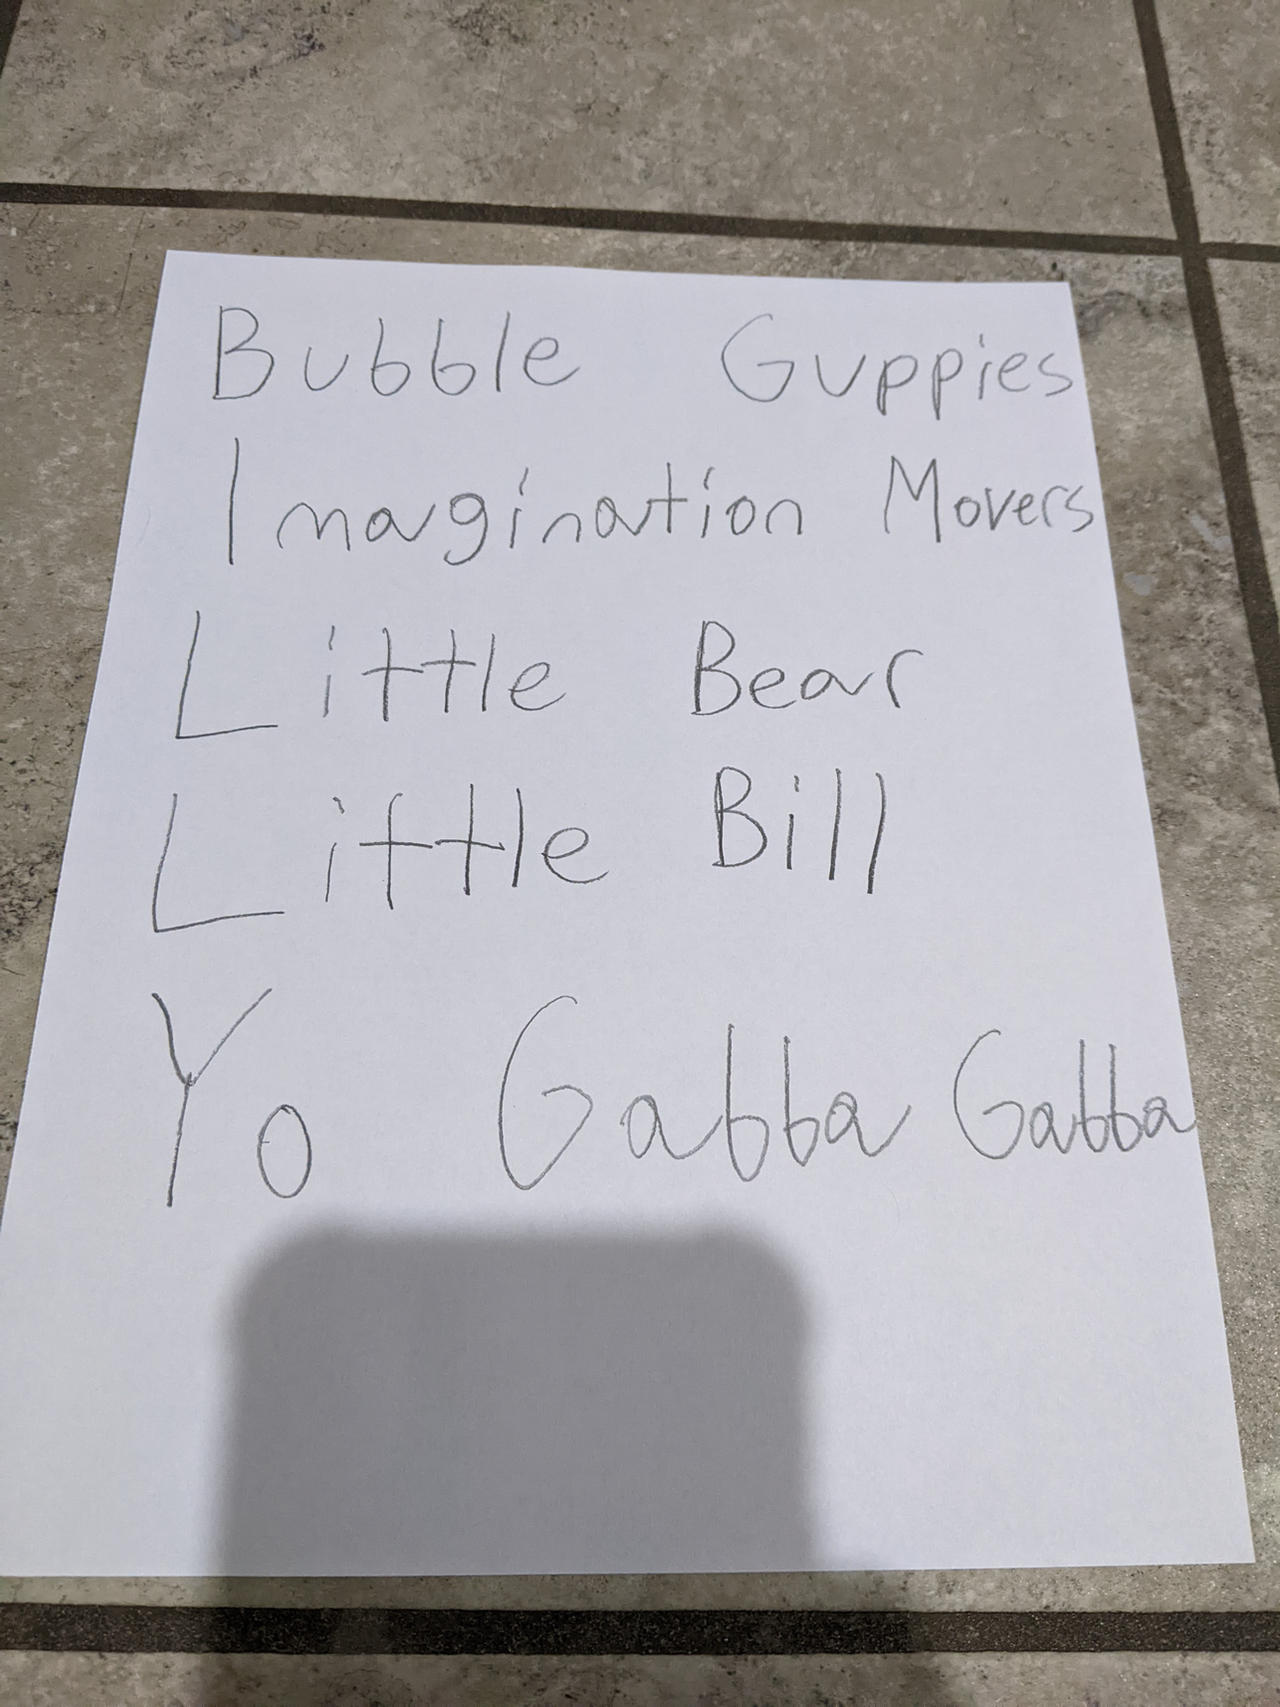 Bubble Guppies
Imagination Movers
Little Bear
Little Bill
Yo Gabba Gabba